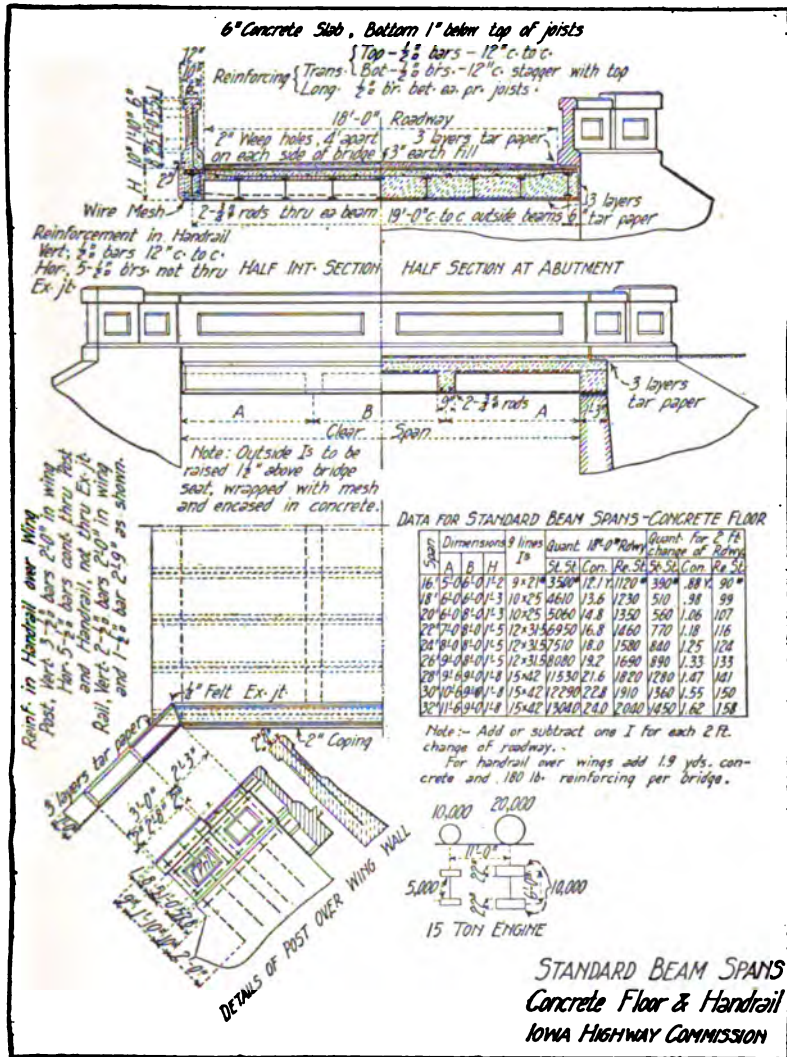 6" Concrete Slab, Bottom 1" below top of joists
Reinforcing { Trans. { Top - ½"□ bars - 12" c. to c.
Bot - ½"□ brs. - 12" c. stagger with top
Long. ½"□ br. bet. ea. pr. joists.
12"
10"
18'-0" Roadway
2" Weep holes, 4' apart
on each side of bridge
3 layers tar paper
3" earth fill
H
2"
Wire Mesh
2-¾"□ rods thru ea beam
19'-0" c. to c. outside beams
6"
3 layers
tar paper
Reinforcement in Handrail
Vert. ½"□ bars 12" c. to c.
Hor. 5-½"□ brs. not thru
Ex. jt.
HALF INT. SECTION
HALF SECTION AT ABUTMENT
3 layers
tar paper
9"
2-¾"□ rods
A
B
A
1'-3"
Clear Span
Note: Outside Is to be
raised 1½" above bridge
seat, wrapped with mesh
and encased in concrete.
Reinf. in Handrail over Wing
Post, Vert. 3-½"□ bars 2'-0" in wing
Hor. 5-½"□ bars cont. thru Post
and Handrail, not thru Ex. jt.
Rail, Vert. 2-½"□ bars 2'-0" in wing
and 1-½"□ bar 2'-9" as shown.
DATA FOR STANDARD BEAM SPANS-CONCRETE FLOOR
Span Dimensions 9 lines Is Quant. 18'-0" Rdwy Quant. for 2 ft change of Rdwy.
A B H St. St. Con. Re. St. St. St. Con. Re. St.
16' 5-0 6-0 1-2 9×21# 3500# 12.1 Y. 1120# 390# .88 Y. 90#
18' 6-0 6-0 1-3 10×25 4610 13.6 1230 510 .98 99
20' 6-0 8-0 1-3 10×25 5060 14.8 1350 560 1.06 107
22' 7-0 8-0 1-5 12×31.5 6950 16.8 1460 770 1.18 116
24' 8-0 8-0 1-5 12×31.5 7510 18.0 1580 840 1.25 124
26' 9-0 8-0 1-5 12×31.5 8080 19.2 1690 890 1.33 133
28' 9-6 9-0 1-8 15×42 11530 21.6 1820 1280 1.47 141
30' 10-6 9-0 1-8 15×42 12290 22.8 1910 1360 1.55 150
32' 11-6 9-0 1-8 15×42 13040 24.0 2040 1450 1.62 158
Note:- Add or subtract one I for each 2 ft.
change of roadway.
For handrail over wings add 1.9 yds. con-
crete and 180 lb. reinforcing per bridge.
½" Felt Ex. jt.
2" Coping
3 layers tar paper
2'-3"
3'-0"
2'-8"
DETAILS OF POST OVER WING WALL
10,000
20,000
11'-0"
5,000
22"
22"
6'-0"
10,000
15 TON ENGINE
STANDARD BEAM SPANS
Concrete Floor & Handrail
IOWA HIGHWAY COMMISSION